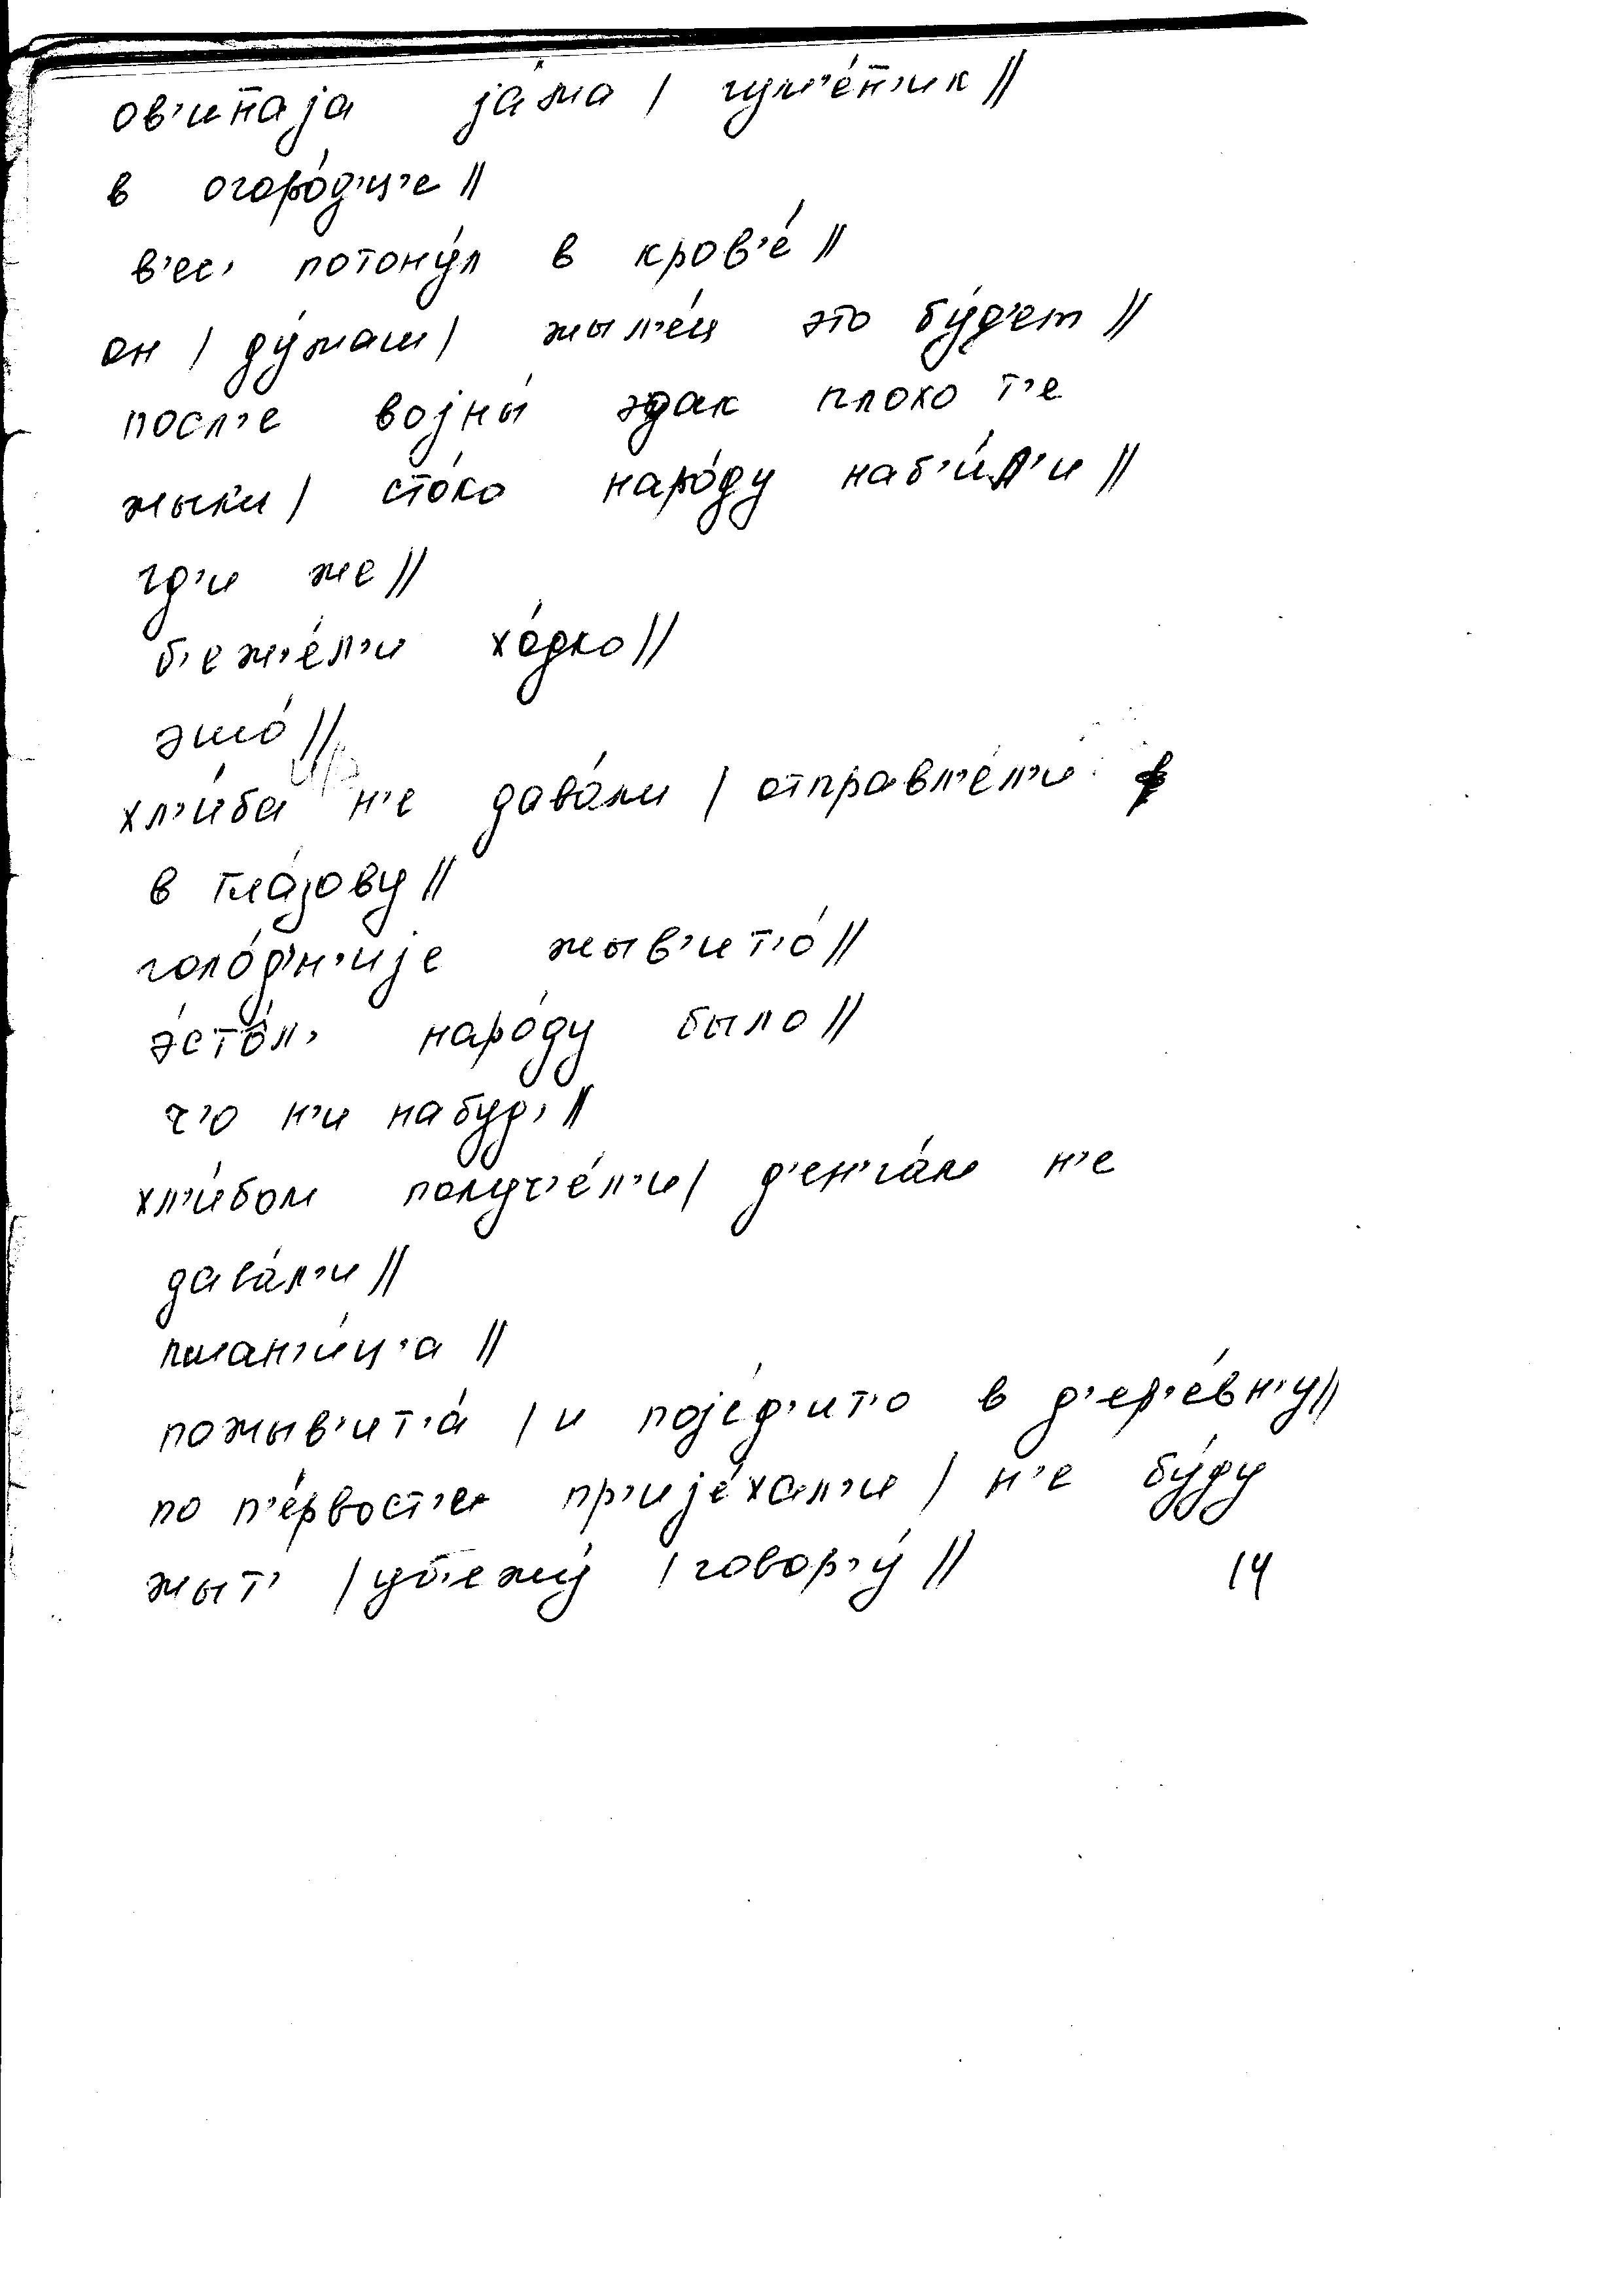 ов'инаjа jа́ма / гум'е́н'ик //
в огоро́д'ц'е //
в'ес' потону́л в кров'е́ //
он / ду́маш / жыл'е́ц это бу́д'ет //
посл'е воjны́ эдак плохо т'е
жыли / сто́ко наро́ду наб'и́л'и //
гд'и же //
б'еж'е́л'и хо́дко //
эшо́ //
хл'и́ба н'е дава́ли / отправл'е́л'и
в Гла́зову //
голо́д'н'иjе жыв'ит'о́ //
э́сто̂л' наро́ду было //
ч'о н'и набуд' //
хл'и́бом получ'е́л'и / д'ен'га́м н'е
дава́л'и //
пшан'и́ц'а //
пожыв'ит'а́ / и поjе́д'ит'о в д'ер'е́вн'у //
по п'е́рвост'е пр'иjе́хал'и / н'е бу́ду
жыт' / уб'ежу́ / говор'у́ //
14